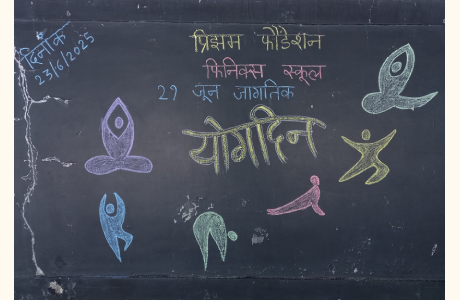 दिनांक
23/6/2025
प्रिझम फौंडेशन
फिनिक्स स्कूल
21 जून जागतिक
योगदिन